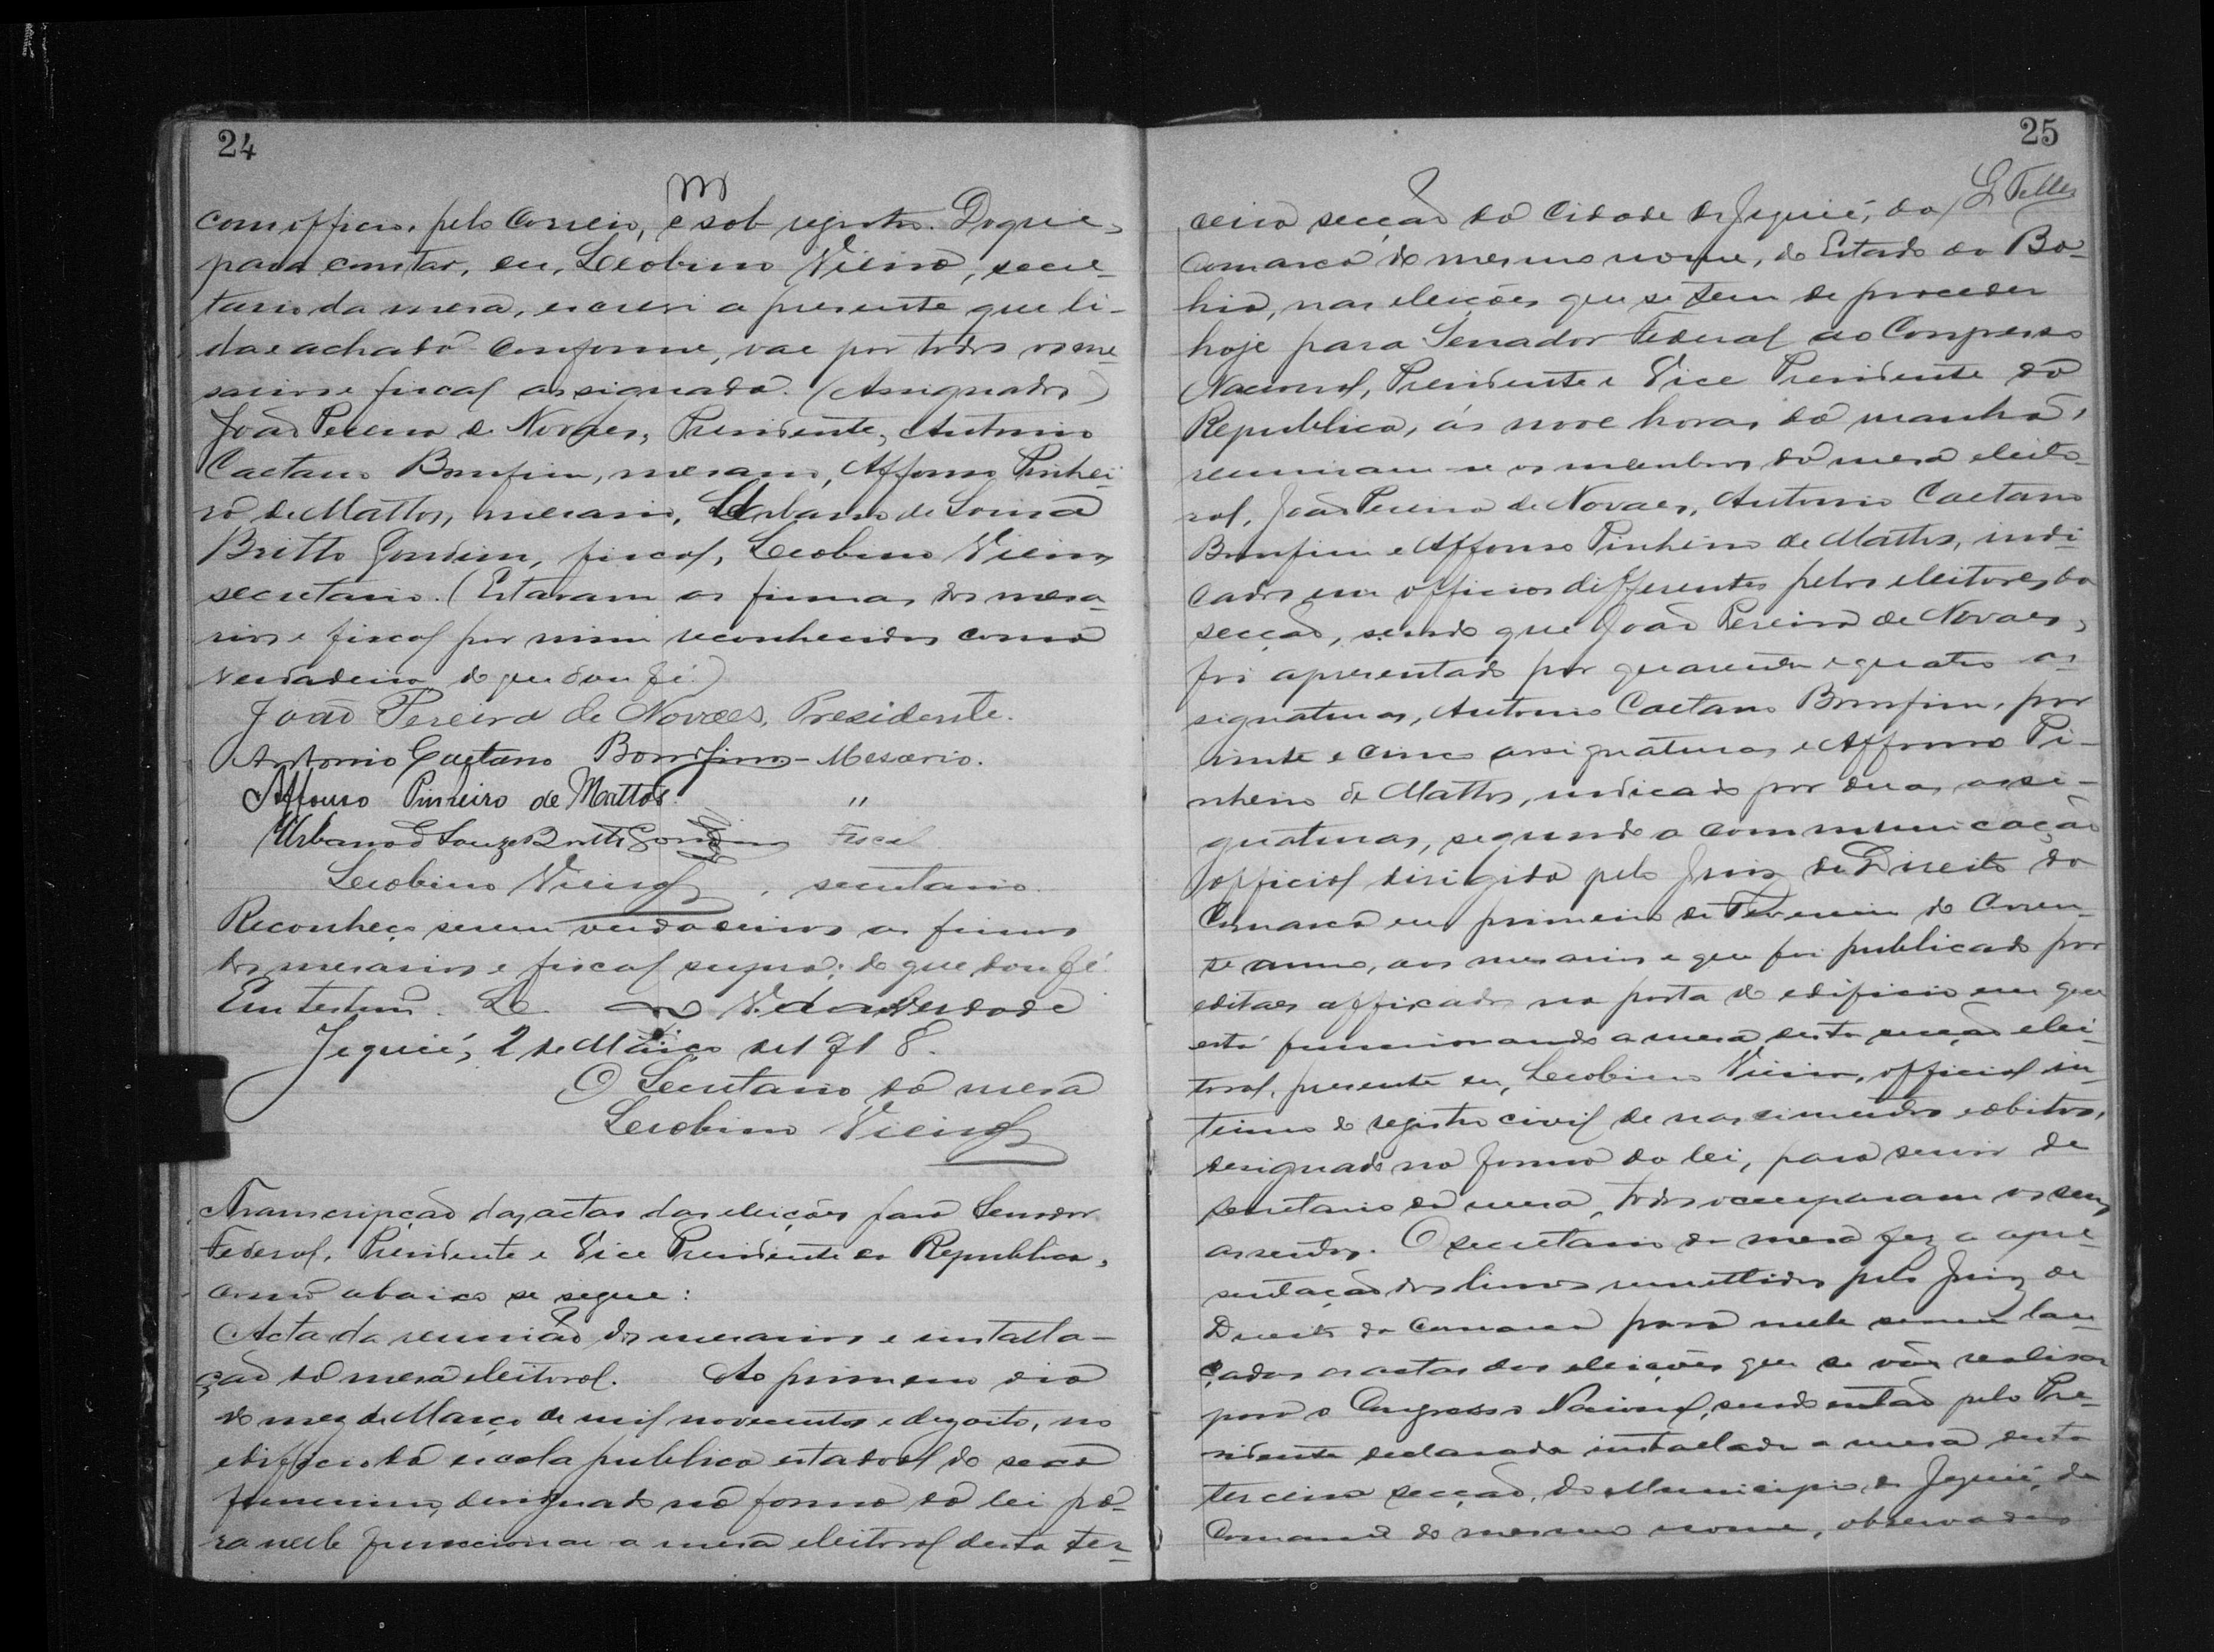 24
com officio, pelo Correio, e sob registro. Do que,
para constar, eu, Leobino Vieira, secre-
tario da mesa, escrevi a presente que li-
da e achada conforme, vae por todos os me
sarios e fiscal assignada. (Assignados)
João Pereira de Novaes, Presidente, Antonio
Caetano Bomfim, mesario, Affonso Pinhei-
ro de Mattos, mesario, Urbano de Souza
Britto Gondim, fiscal, Leobino Vieira
secretario. (Estavam as firmas dos mesa-
rios e fiscal por mim reconhecidas como
verdadeira do que dou fé.)
João Pereira de Novaes, Presidente.
Antonio Caetano Bomfim - Mesario.
Affonso Pinheiro de Mattos "
Urbano d Souza Britto Gondim Fiscal
Leobino Vieira, secretario.
Reconheço serem verdadeiras as firmas
dos mesarios e fiscal supra; do que dou fé.
Em testemº. L. V. da verdade
Jequié, 2 de Março de 1918.
O Secretario da mesa
Leobino Vieira
Transcripção das actas das eleições para Senador
Federal, Presidente e Vice Presidente da Republica,
como abaixo se segue:
Acta da reunião dos mesarios e installa-
ção da mesa eleitoral. Ao primeiro dia
do mez de Março de mil novecentos e dezoito, no
edificio da escola publica estadoal do sexo
femenino, designado na forma da lei pa-
ra nelle funccionar a mesa eleitoral desta ter-
25
L Telles
ceira secção da Cidade de Jequié, da
Comarca do mesmo nome, do Estado da Ba-
hia, nas eleições que se tem de proceder
hoje para Senador Federal ao Congresso
Nacional, Presidente e Vice Presidente da
Republica, ás nove horas da manhã,
reuniram-se os membros da mesa eleito-
ral, João Pereira de Novaes, Antonio Caetano
Bomfim e Affonso Pinheiro de Mattos, indi-
cados em officios differentes pelos eleitores da
secção, sendo que João Pereira de Novaes,
foi apresentado por quarenta e quatro as-
signaturas, Antonio Caetano Bomfim, por
vinte e cinco assignaturas e Affonso Pi-
nheiro de Mattos, indicado por duas assi-
gnaturas, segundo a communicação
official dirigida pelo Juiz de Direito da
Comarca em primeiro de Fevereiro do corren-
te anno, aos mesarios e que foi publicado por
editaes affixados na porta do edificio em que
está funccionando a mesa desta secção elei-
toral, presente eu, Leobino Vieira, official in-
terino do registro civil de nascimentos e obitos,
designado na forma da lei, para servir de
secretario da mesa, todos occuparam os seus
assentos. O secretario da mesa fez a apre-
sentação dos livros remettidos pelo Juiz de
Direito da Comarca para nelle serem lan-
çadas as actas das eleições que se vão realisar
para o Congresso Nacional, sendo então pelo Pre-
sidente declarada installada a mesa desta
terceira secção, do Municipio de Jequié, da
Comarca do mesmo nome, observadas